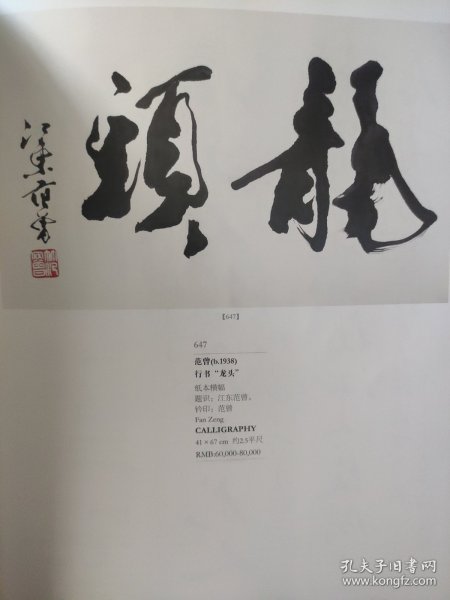 龍頭
江東范曾
【647】
647
范曾(b.1938)
行书“龙头”
纸本横幅
题识：江东范曾。
钤印：范曾
Fan Zeng
CALLIGRAPHY
41×67 cm 约2.5平尺
RMB:60,000-80,000
孔夫子旧书网
www.kongfz.com